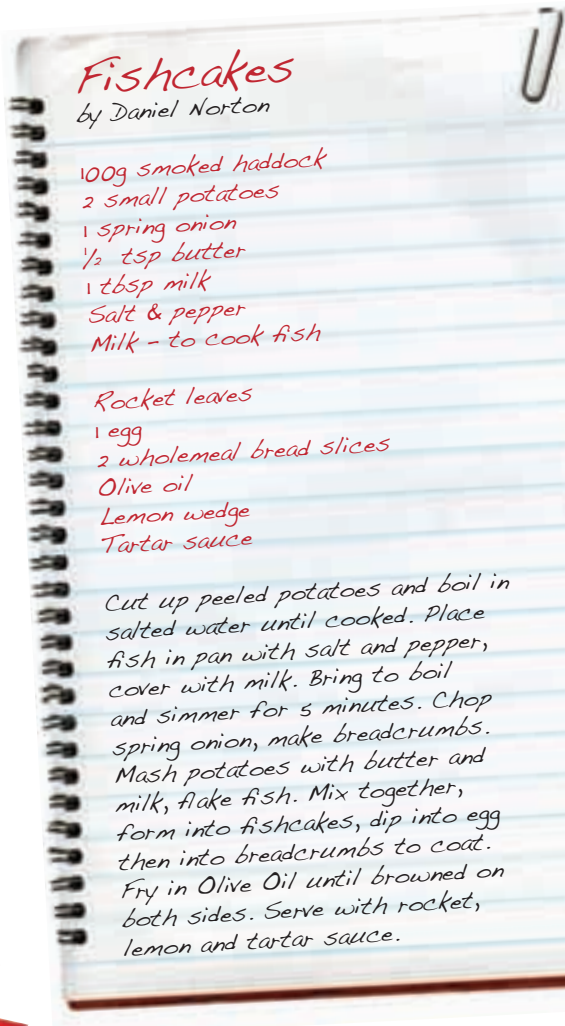 Fishcakes
by Daniel Norton
100g smoked haddock
2 small potatoes
1 spring onion
½ tsp butter
1 tbsp milk
Salt & pepper
Milk - to cook fish
Rocket leaves
1 egg
2 wholemeal bread slices
Olive oil
Lemon wedge
Tartar sauce
Cut up peeled potatoes and boil in
salted water until cooked. Place
fish in pan with salt and pepper,
cover with milk. Bring to boil
and simmer for 5 minutes. Chop
spring onion, make breadcrumbs.
Mash potatoes with butter and
milk, flake fish. Mix together,
form into fishcakes, dip into egg
then into breadcrumbs to coat.
Fry in Olive Oil until browned on
both sides. Serve with rocket,
lemon and tartar sauce.